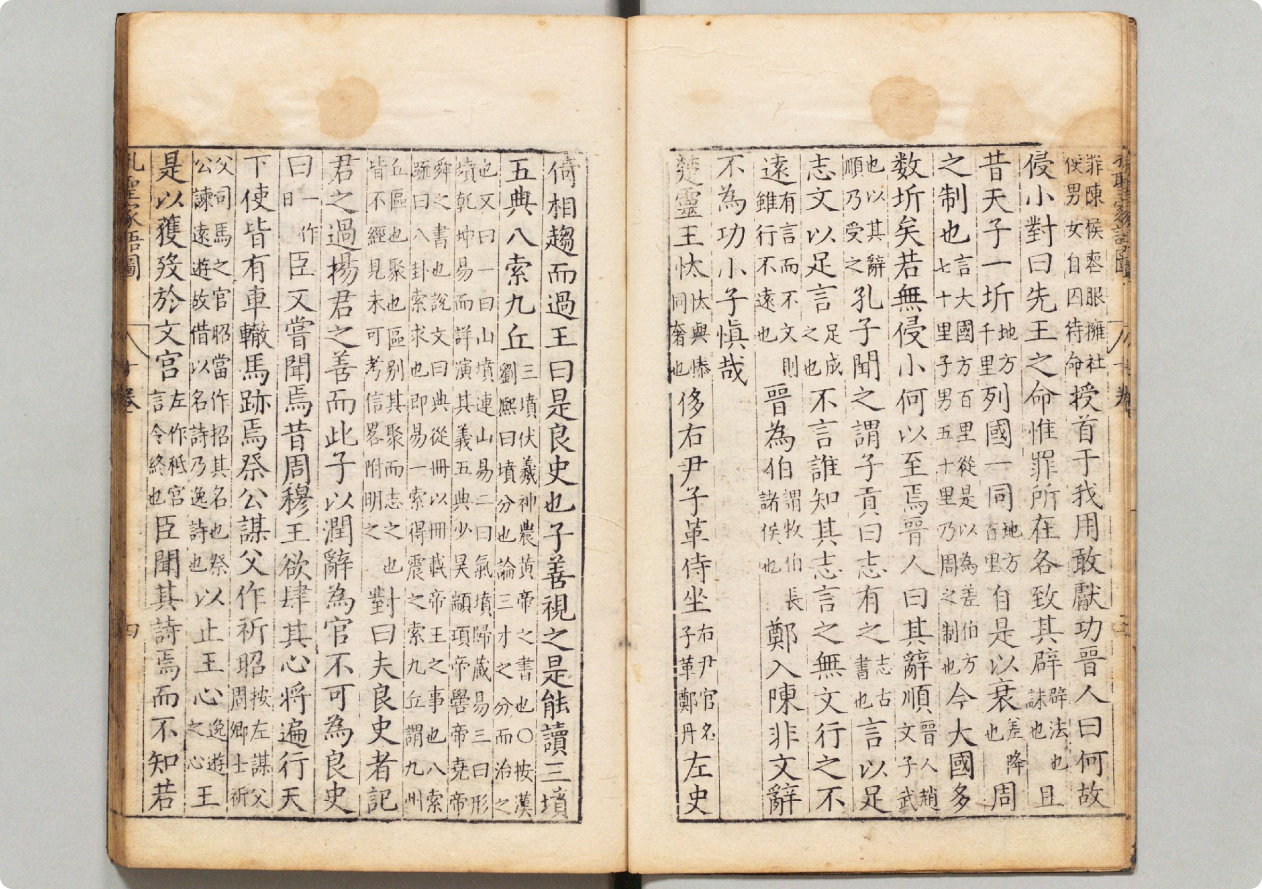 罪陳侯擁社侯男女自囚待命授首于我用敢獻功晉人曰何故
侵小對曰先王之命惟罪所在各致其辟辟法也誅也且
昔天子一圻地方千里列國一同地方百里自是以衰差降也周
之制也言大國方百里從是以為差伯方七十里子男五十里乃周之制也今大國多
數圻矣若無侵小何以至焉晉人曰其辭順晉人趙文子武
也以其辭順乃受之孔子聞之謂子貢曰志有之志古書也言以足
志文以足言足成之也不言誰知其志言之無文行之不
遠有言而不文則雖行不遠也晉為伯謂牧伯長諸侯也鄭入陳非文辭
不為功小子慎哉
楚靈王汰汰與㤗同奢也侈右尹子革侍坐右尹官名子革鄭丹左史
倚相趨而過王曰是良史也子善視之是能讀三墳
五典八索九丘三墳伏羲神農黃帝之書也〇按漢劉熙曰墳分也論三才之分而治之
也又曰一曰山墳連山易二曰氣墳歸藏易三曰形墳乾坤易而詳演其義五典少昊顓頊帝嚳帝堯帝
舜之書也說文曰典從冊以冊載帝王之事也八索䟽曰八卦索求也即易一索得震之索九丘謂九州
丘區也聚也區别其聚而志之也皆不經見未可考信畧附明之對曰夫良史者記
君之過揚君之善而此子以潤辭為官不可為良史
曰一作日臣又嘗聞焉昔周穆王欲肆其心將遍行天
下使皆有車轍馬跡焉祭公謀父作祈昭按左謀父周卿士祈
父司馬之官昭當作招其名也祭公諫遠遊故借以名詩乃逸詩也以止王心逸遊之心王
是以獲歿於文宮左作祗宮言令終也臣聞其詩焉而不知若
孔聖家語圖 八 十卷 四